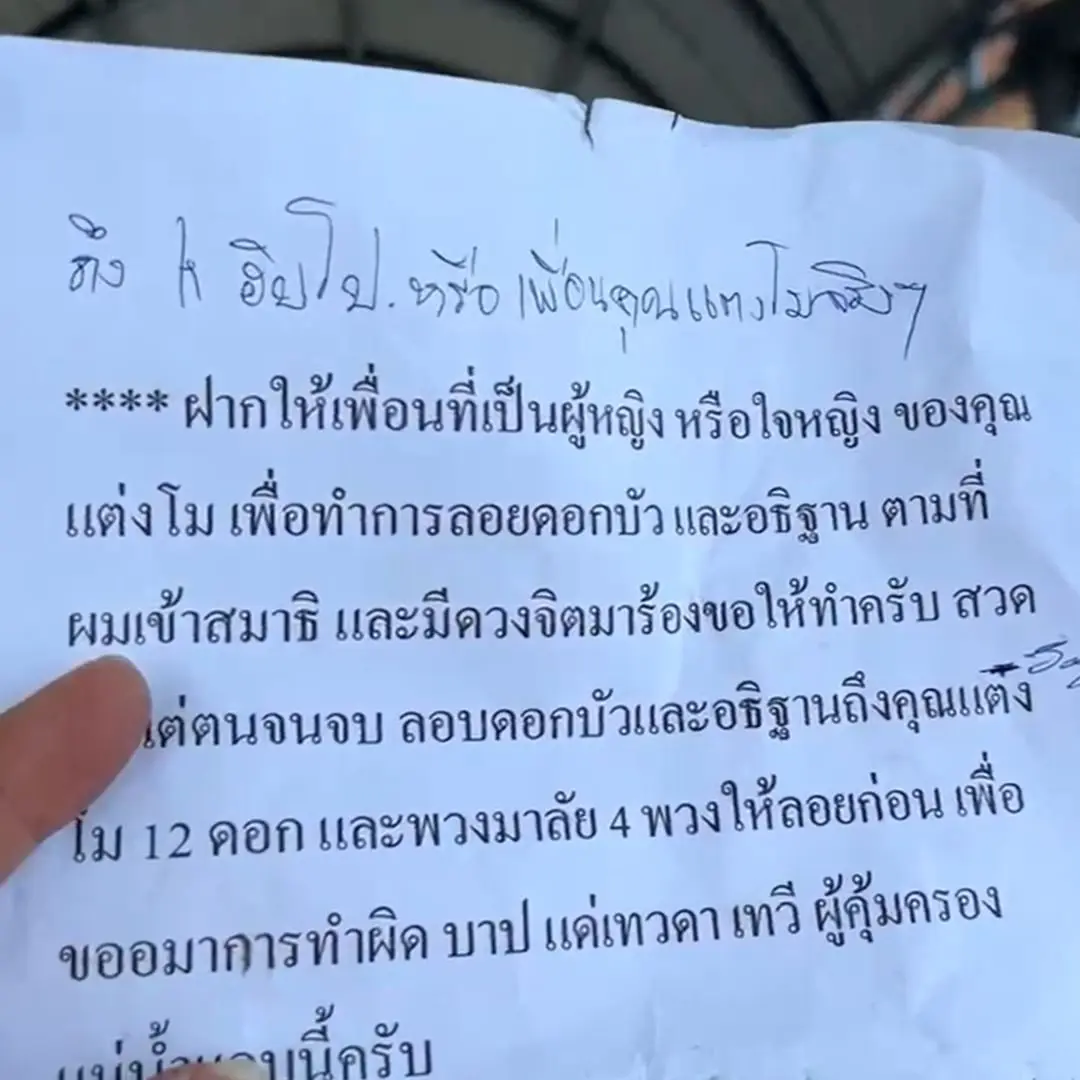 ถึง พี่ ฮิปโป. หรือ เพื่อนคุณแตงโมจริงๆ
**** ฝากให้เพื่อนที่เป็นผู้หญิง หรือใจหญิง ของคุณ
แต่งโม เพื่อทำการลอยดอกบัว และอธิฐาน ตามที่
ผมเข้าสมาธิ และมีดวงจิตมาร้องขอให้ทำครับ สวด
แต่ตนจนจบ ลอบดอกบัวและอธิฐานถึงคุณแต๋ง
โม 12 ดอก และพวงมาลัย 4 พวงให้ลอยก่อน เพื่อ
ขออมาการทำผิด บาป แด่เทวดา เทวี ผู้คุ้มครอง
นี้ครับ